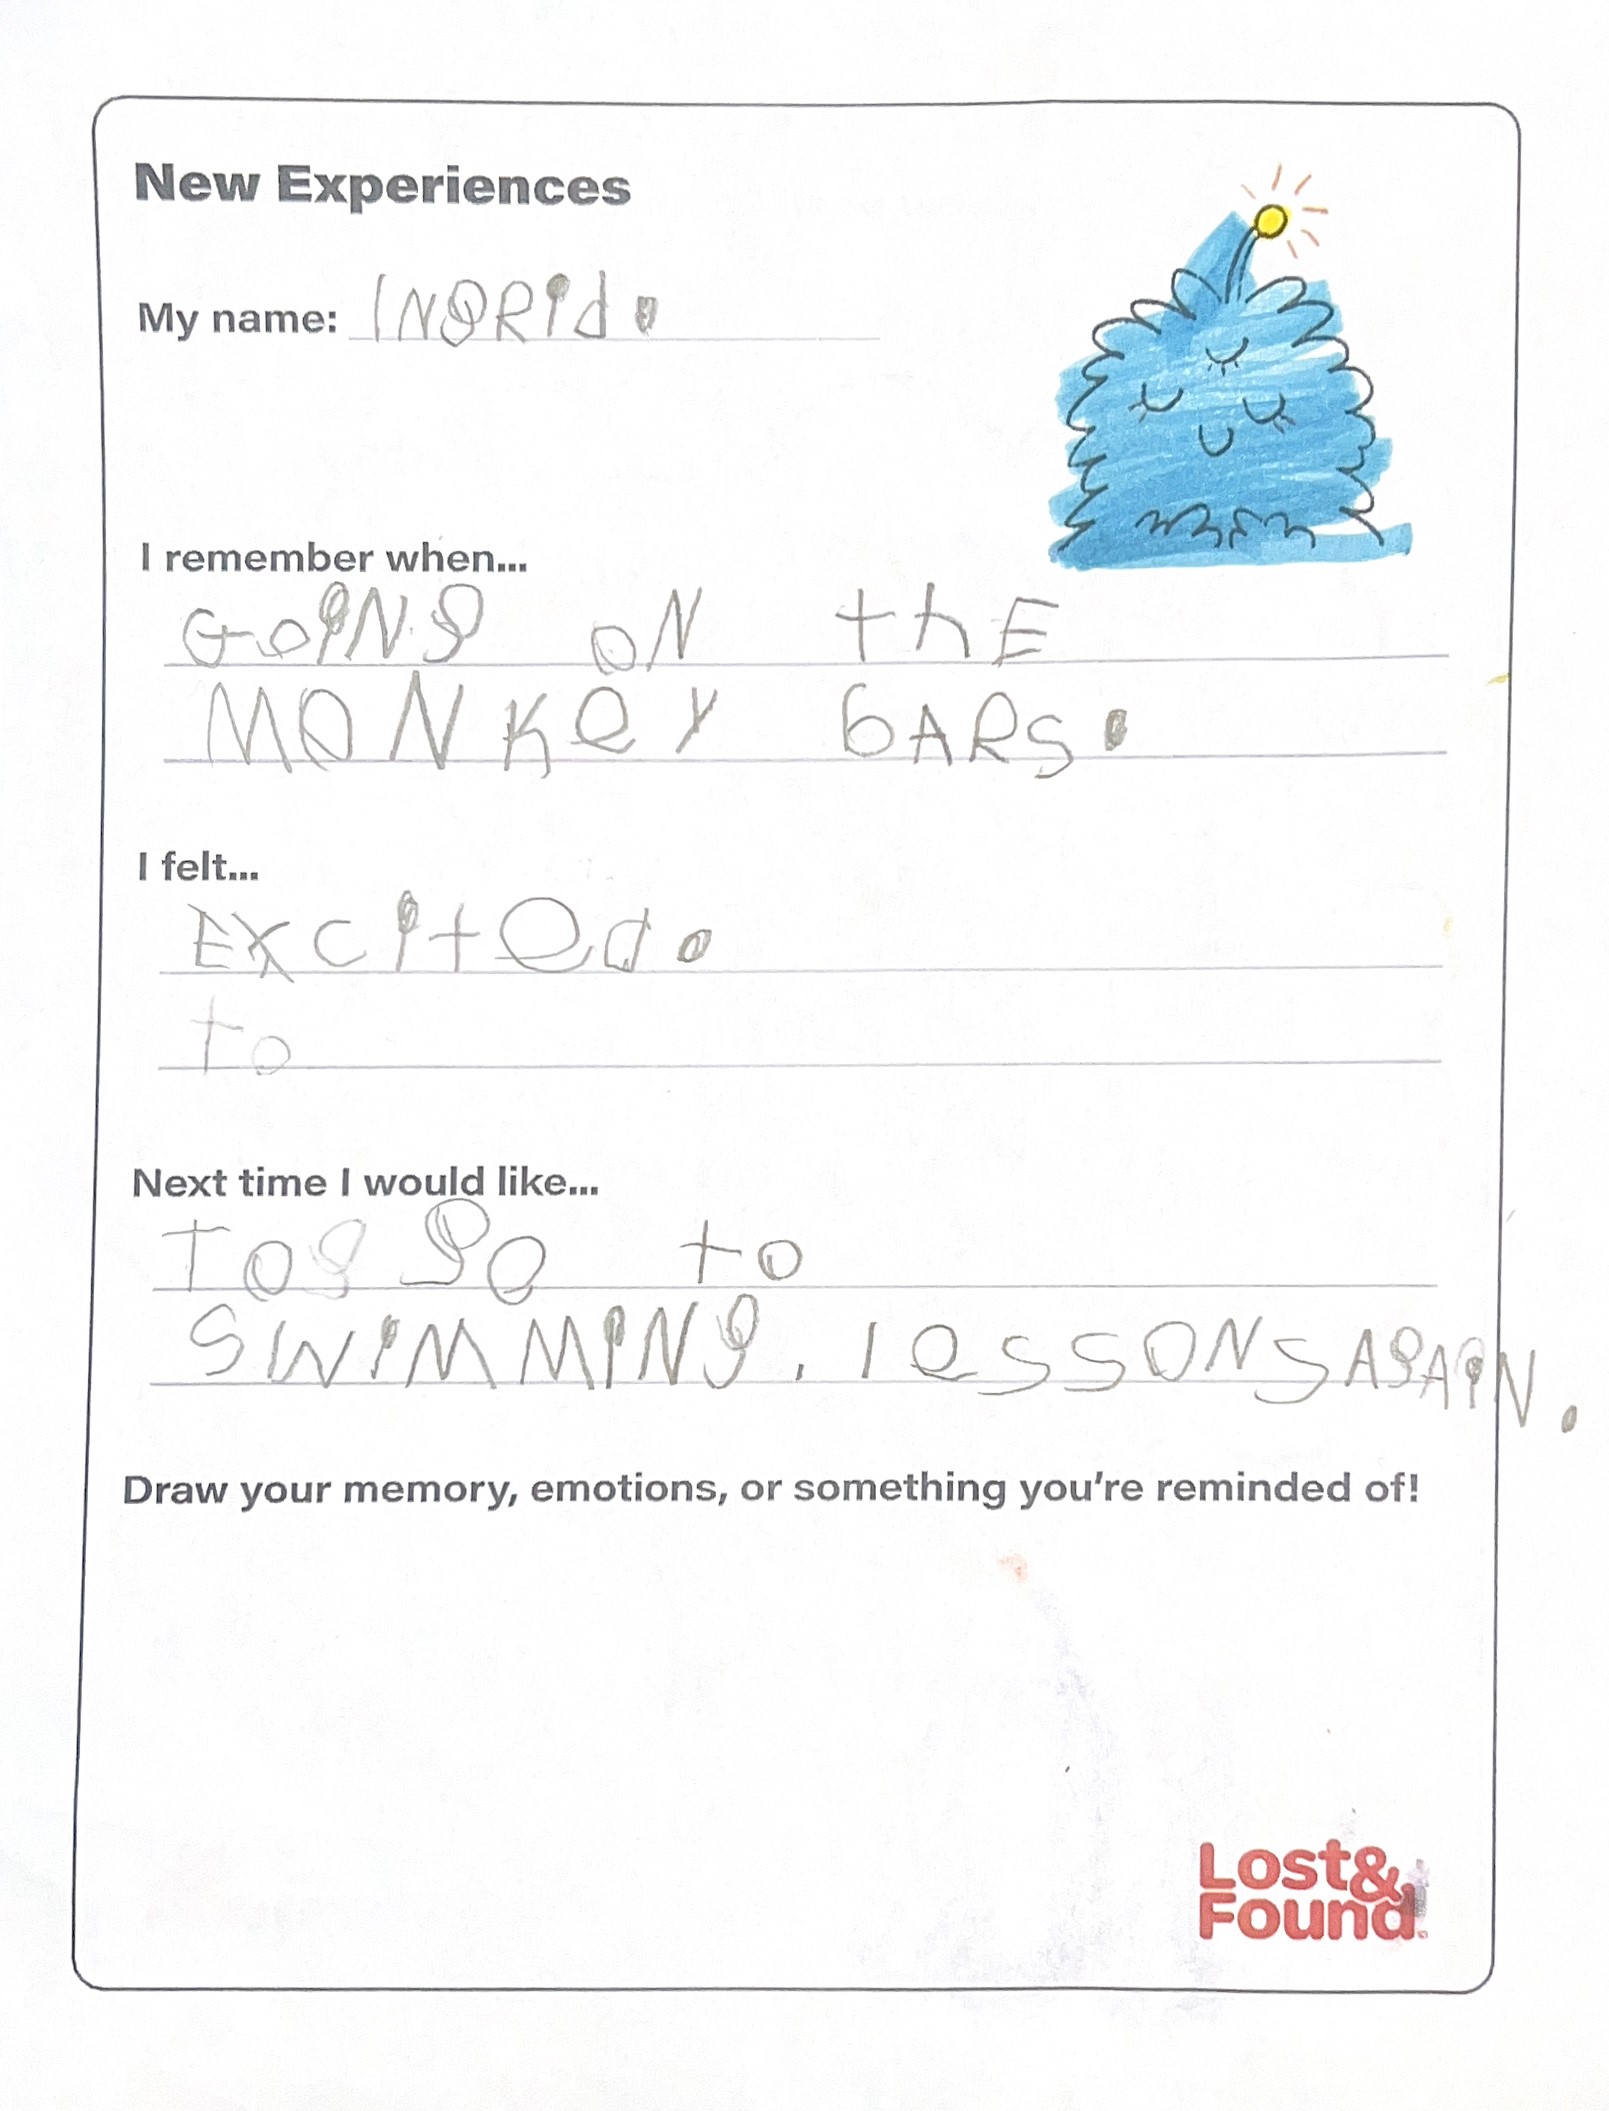 New Experiences
My name: INgRid.
I remember when...
GoiNg oN thE
MONKeY bARS.
I felt...
EXCited.
to
Next time I would like...
Tog go to
SWiMMiNg. leSSONS AgAiN.
Draw your memory, emotions, or something you're reminded of!
Lost&
Found.